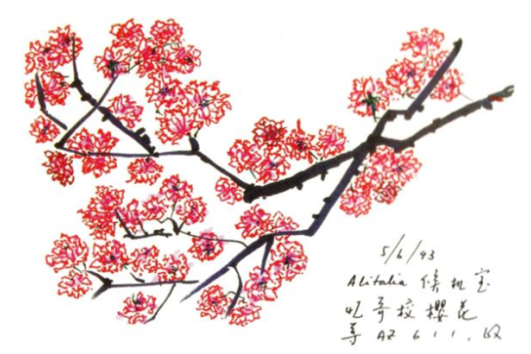 5/6/93
Alitalia 候机室
校樱花
等 AZ 611.